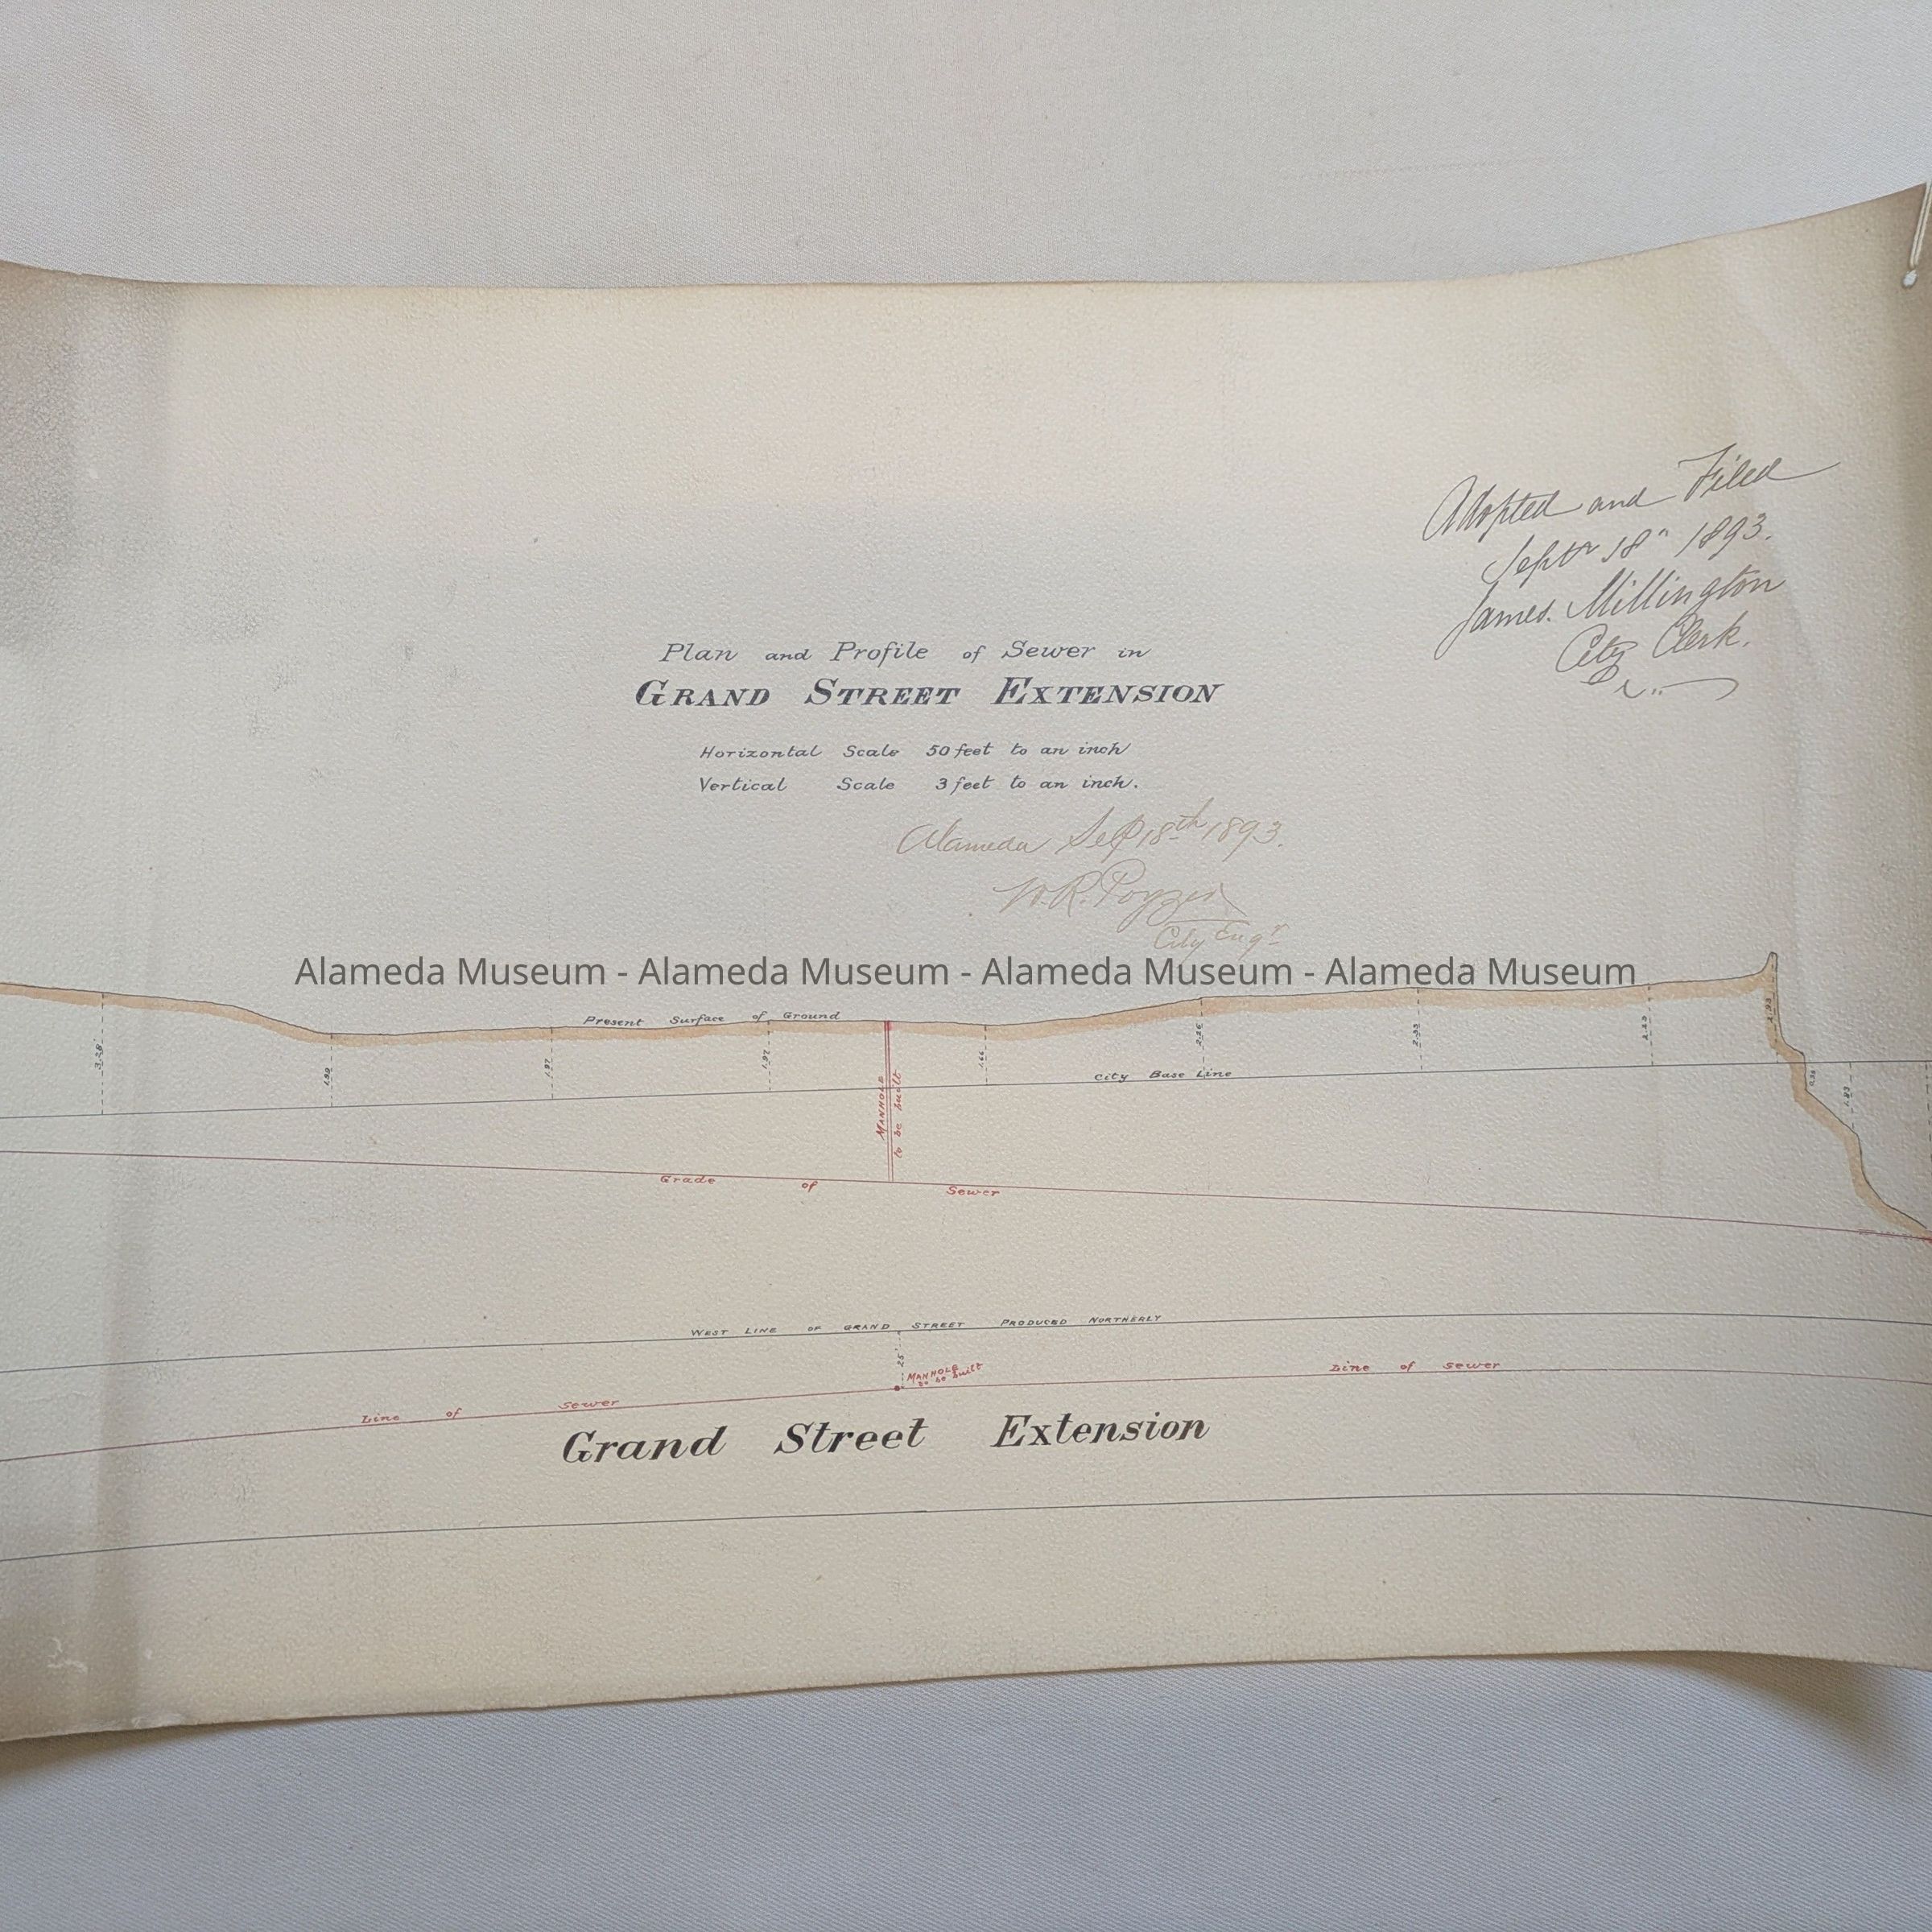 Adopted and Filed
Septr 18" 1893.
James. Millington
City Clerk.
Plan and Profile of Sewer in
GRAND STREET EXTENSION
Horizontal Scale 50 feet to an inch
Vertical Scale 3 feet to an inch.
Alameda Sep 18th 1893.
W. R. Poyzer
City Engr
Alameda Museum - Alameda Museum - Alameda Museum - Alameda Museum
Present Surface of Ground
3.28
1.99
1.97
1.97
1.66
2.26
2.33
2.23
1.93
City Base Line
MANHOLE
to be built
Grade of Sewer
WEST LINE OF GRAND STREET PRODUCED NORTHERLY
25'
MANHOLE
to be built
Line of Sewer
Line of Sewer
Grand Street Extension